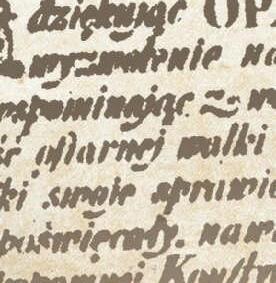 dziękując OP
wyzwolenie na
wspominając z w
ofiarnej walki
ki swoje sprawie
poświęcały. naw